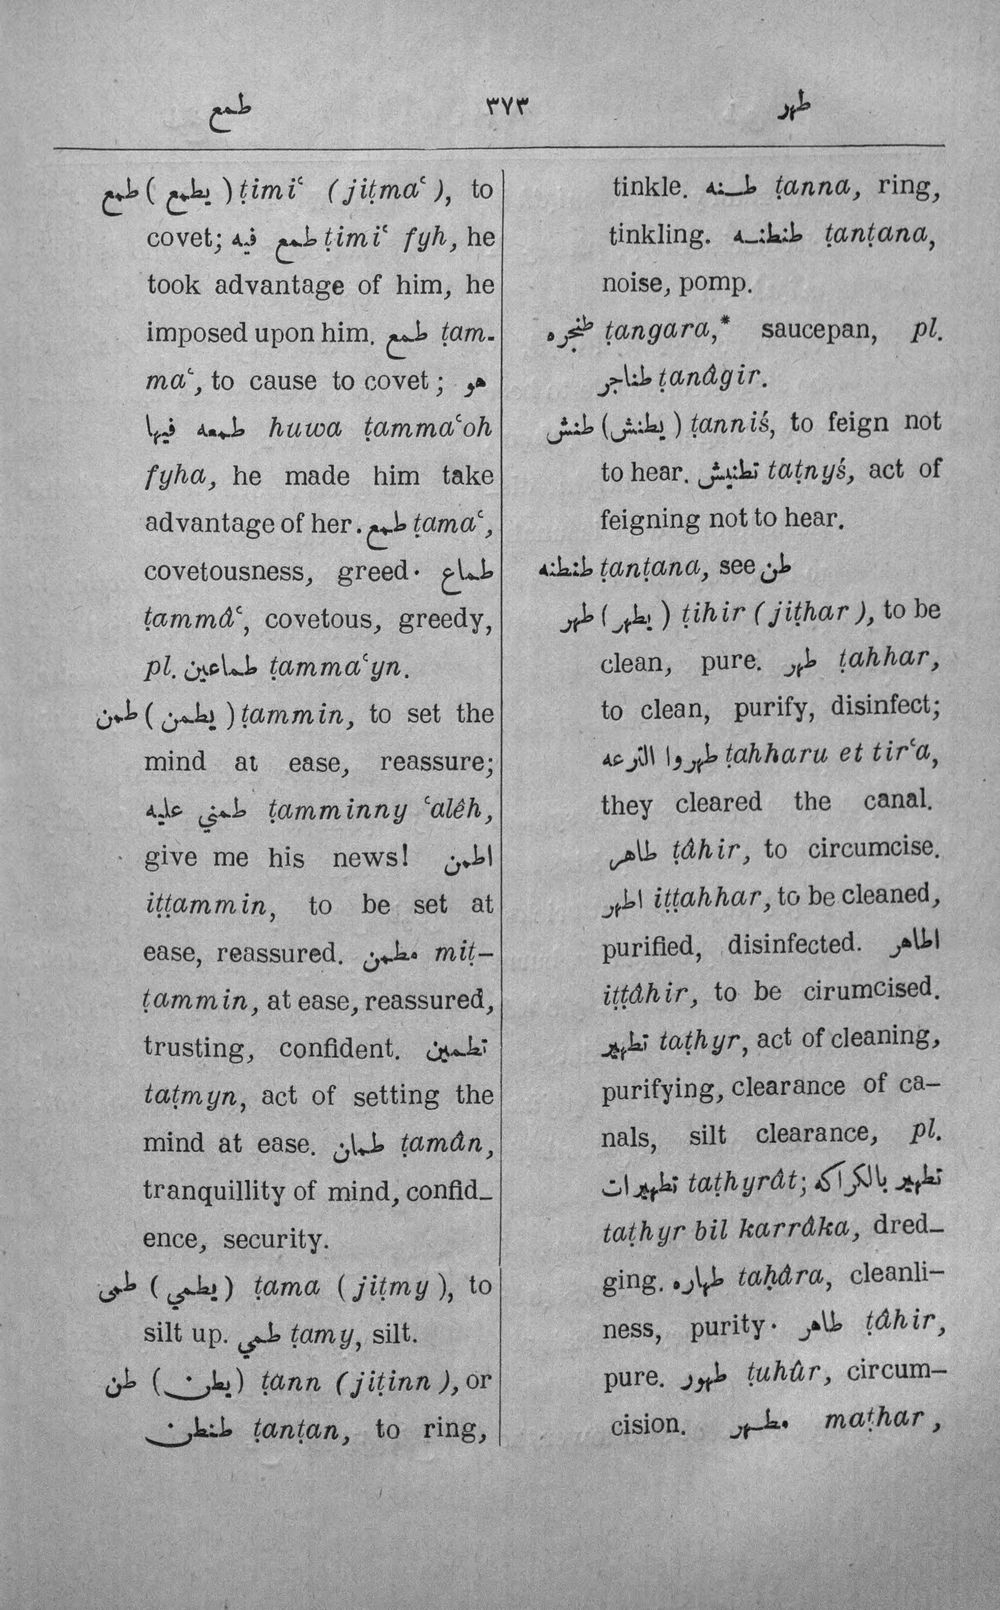 طمع ٣٧٣ طهر
طمع ( يطمع ) ṭimiʿ (jiṭmaʿ), to
covet; طمع فيه ṭimiʿ fyh, he
took advantage of him, he
imposed upon him. طمع ṭam-
maʿ, to cause to covet ; هو
طمعه فيها huwa ṭammaʿoh
fyha, he made him take
advantage of her. طمع ṭamaʿ,
covetousness, greed. طماع
ṭammâʿ, covetous, greedy,
pl. طماعين ṭammaʿyn.
طمن ( يطمن ) ṭammin, to set the
mind at ease, reassure;
طمني عليه ṭamminny ʿalêh,
give me his news! اطمن
iṭṭammin, to be set at
ease, reassured. مطمن miṭ-
ṭammin, at ease, reassured,
trusting, confident. تطمين
taṭmyn, act of setting the
mind at ease. طمان ṭamân,
tranquillity of mind, confid-
ence, security.
طمى ( يطمي ) ṭama (jiṭmy), to
silt up. طمي ṭamy, silt.
طن ( يطن ) ṭann (jiṭinn), or
طنطن ṭanṭan, to ring,
tinkle. طنه ṭanna, ring,
tinkling. طنطنه ṭanṭana,
noise, pomp.
طنجره ṭangara,* saucepan, pl.
طناجر ṭanâgir.
طنش ( يطنش ) ṭanniś, to feign not
to hear. تطنيش taṭnyś, act of
feigning not to hear.
طنطنه ṭanṭana, see طن
طهر ( يطهر ) ṭihir (jiṭhar), to be
clean, pure. طهر ṭahhar,
to clean, purify, disinfect;
طهروا الترعه ṭahharu et tirʿa,
they cleared the canal.
طاهر ṭâhir, to circumcise.
اطهر iṭṭahhar, to be cleaned,
purified, disinfected. اطاهر
iṭṭâhir, to be cirumcised.
تطهير taṭhyr, act of cleaning,
purifying, clearance of ca-
nals, silt clearance, pl.
تطهيرات taṭhyrât; تطهير بالكراكه
taṭhyr bil karrâka, dred-
ging. طهاره taḥâra, cleanli-
ness, purity. طاهر ṭâhir,
pure. طهور ṭuhûr, circum-
cision. مطهر maṭhar,